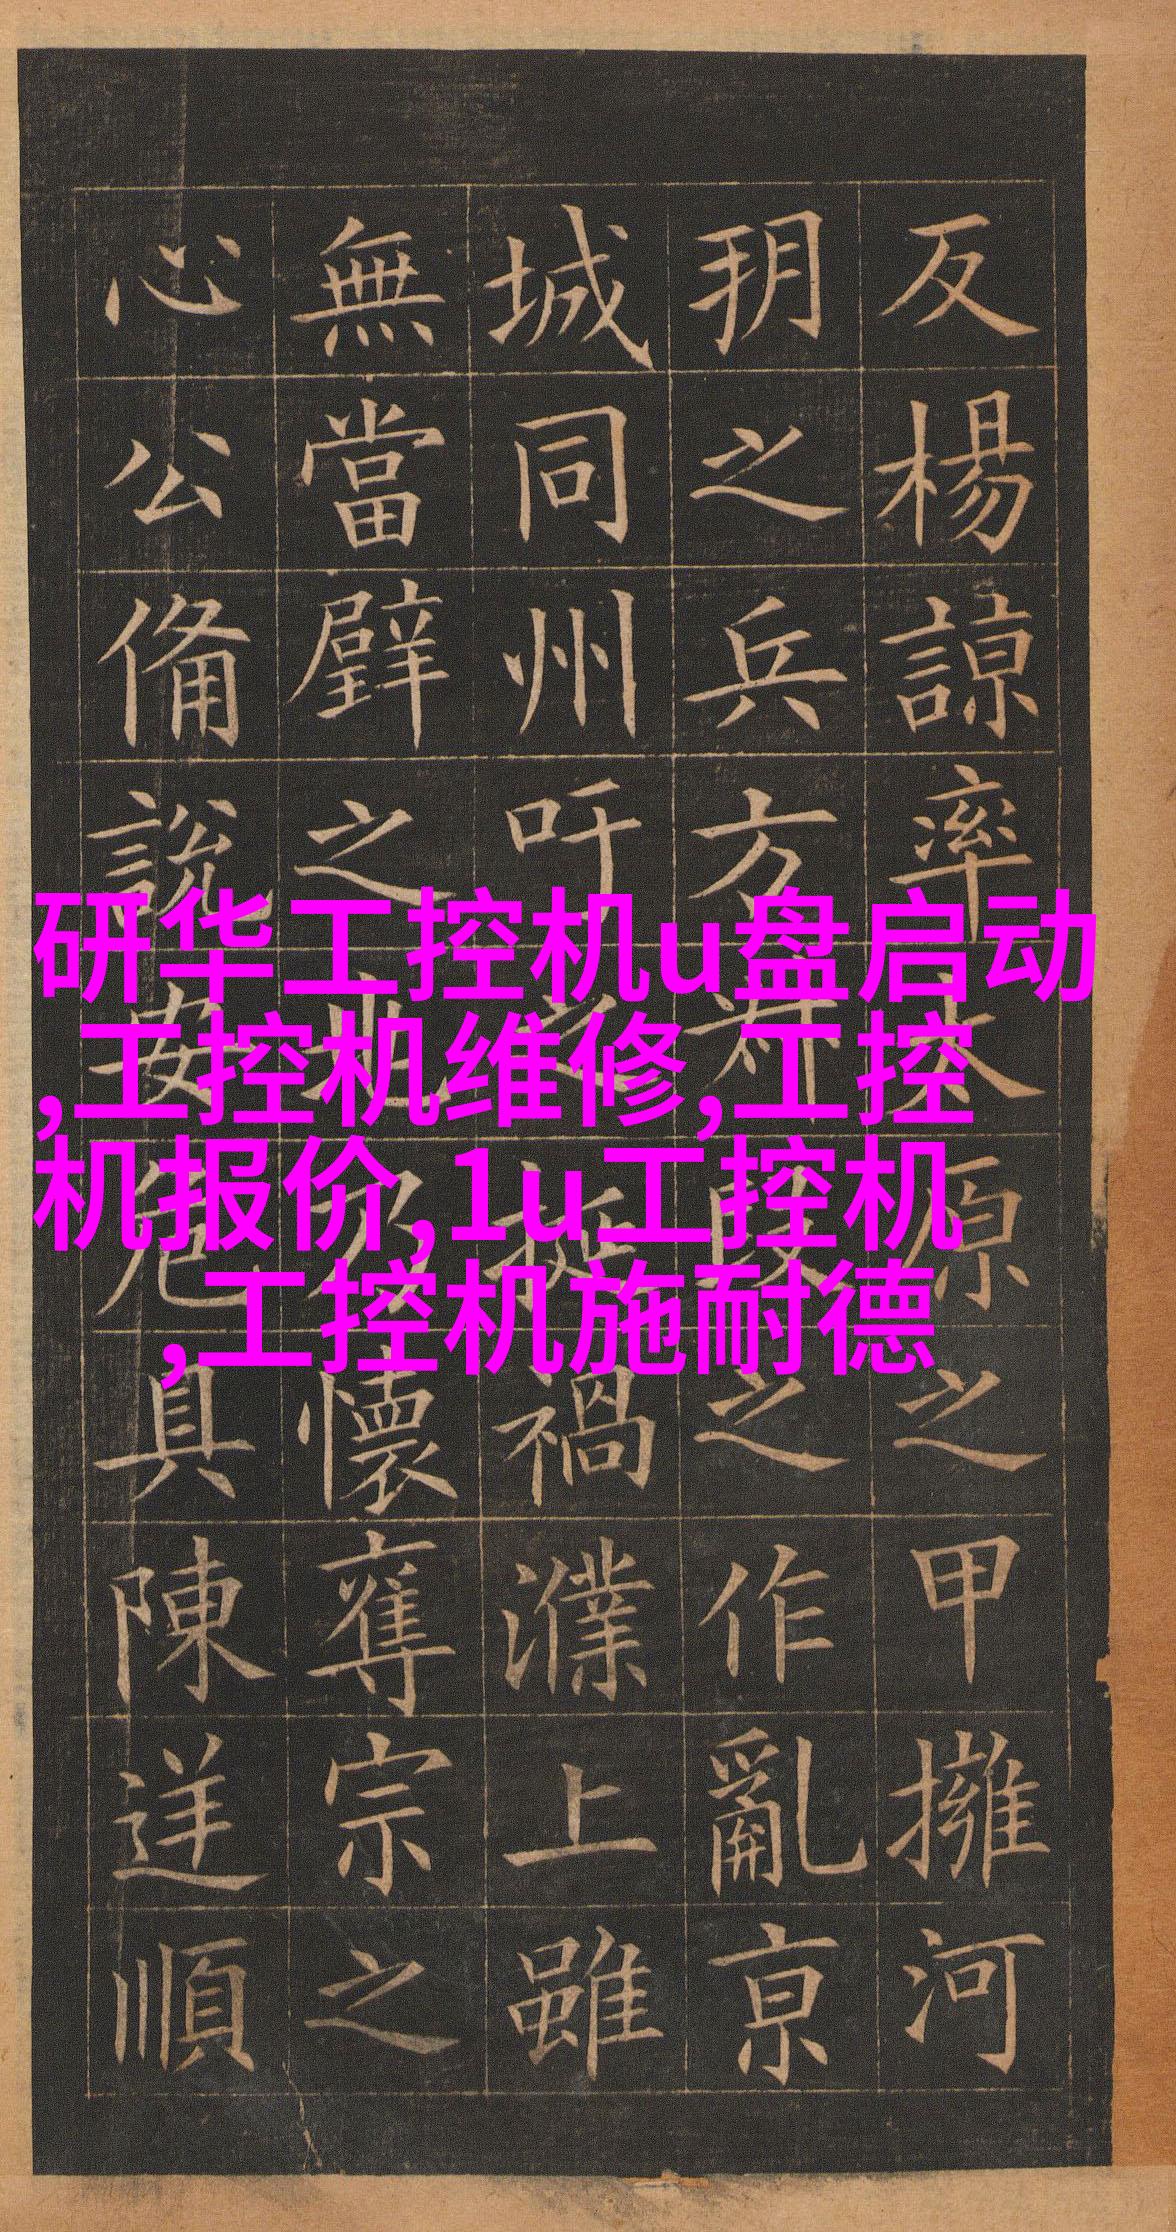 反楊諒率太原之甲擁河
玥之兵方段之作亂京
城同州吁之挻禍濮上雖
無當璧之兆乃懷奪宗之
心公備說安危具陳逆順
研华工控机u盘启动
,工控机维修,工控
机报价,1u工控机
,工控机施耐德